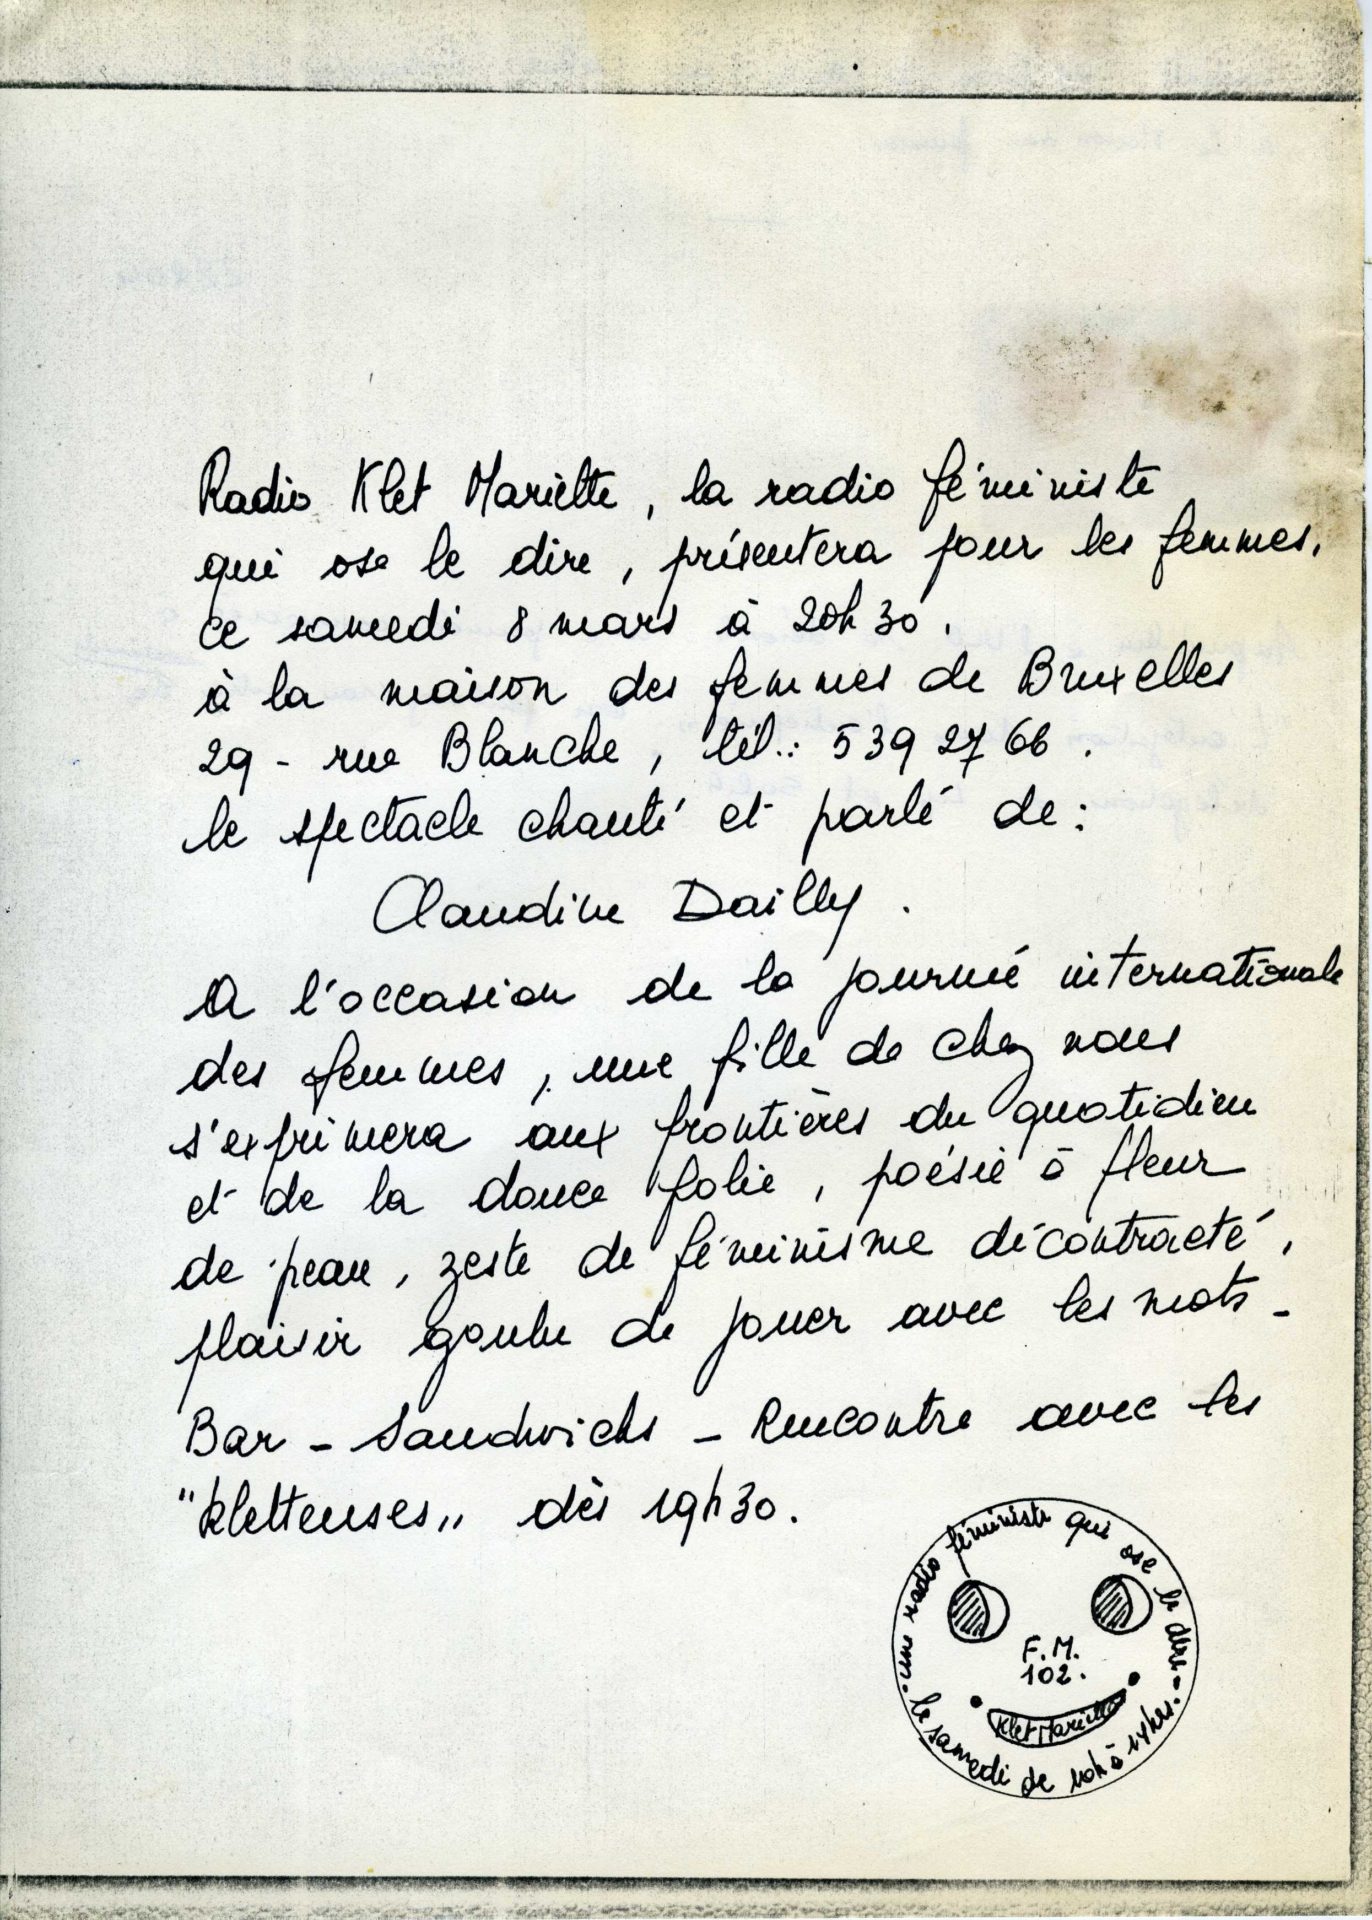 Radio Klet Mariette, la radio féministe
qui ose le dire, présentera pour les femmes,
ce samedi 8 mars à 20h30.
à la maison des femmes de Bruxelles
29 - rue Blanche, tél.: 539 27 66.
le spectacle chanté et parlé de:
Claudine Dailly.
A l'occasion de la journée internationale
des femmes, une fille de chez nous
s'exprimera aux frontières du quotidien
et de la douce folie, poésie à fleur
de peau, zeste de féminisme décontracté,
plaisir goulu de jouer avec les mots -
Bar - Sandwichs - Rencontre avec les
"Kletteuses" dès 19h30.
- une radio féministe qui ose le dire -
F.M.
102.
Klet Mariette
le samedi de 10h à 14hrs.